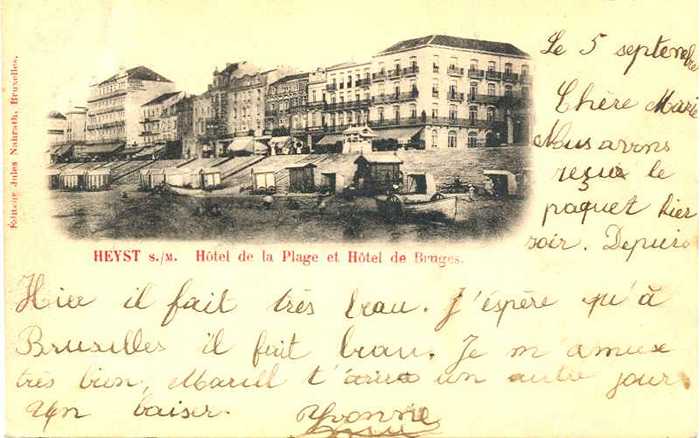 Le 5 septembre
Chère Marie
Nous avons
reçu le
paquet hier
soir. Depuis
Editeur Jules Nahrath, Bruxelles.
HEYST S./M. Hôtel de la Plage et Hôtel de Bruges.
Hier il fait très beau. J'éspère qu'à
Bruxelles il fait beau. Je m'amuse
très bien, Marcel t'écrira un autre jour
Un baiser. Yvonne